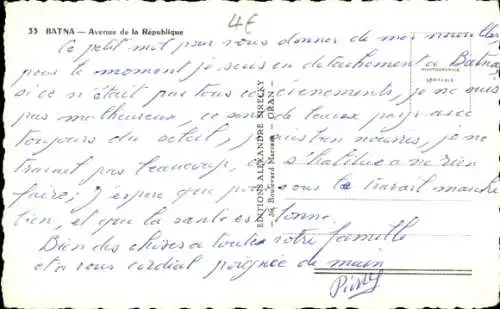 4€
33 BATNA — Avenue de la République
Ce petit mot pour vous donner de mes nouvelles
pour le moment je suis en détachement a Batna
si ce n'était pas tous ces évènements, je ne suis
pas malheureux, ce sont de beaux pays avec
toujours du soleil, je suis bien nourris, je ne
travail pas beaucoup, on s'habitue a ne rien
faire; j'espère que pour vous le travail marche
bien, et que la santé est bonne.
Bien des choses a toute votre famille
et a vous cordial poignée de main
EDITIONS ALEXANDRE SIRECKY
— 36, Boulevard Marceau - ORAN —
PHOTOGRAPHIE